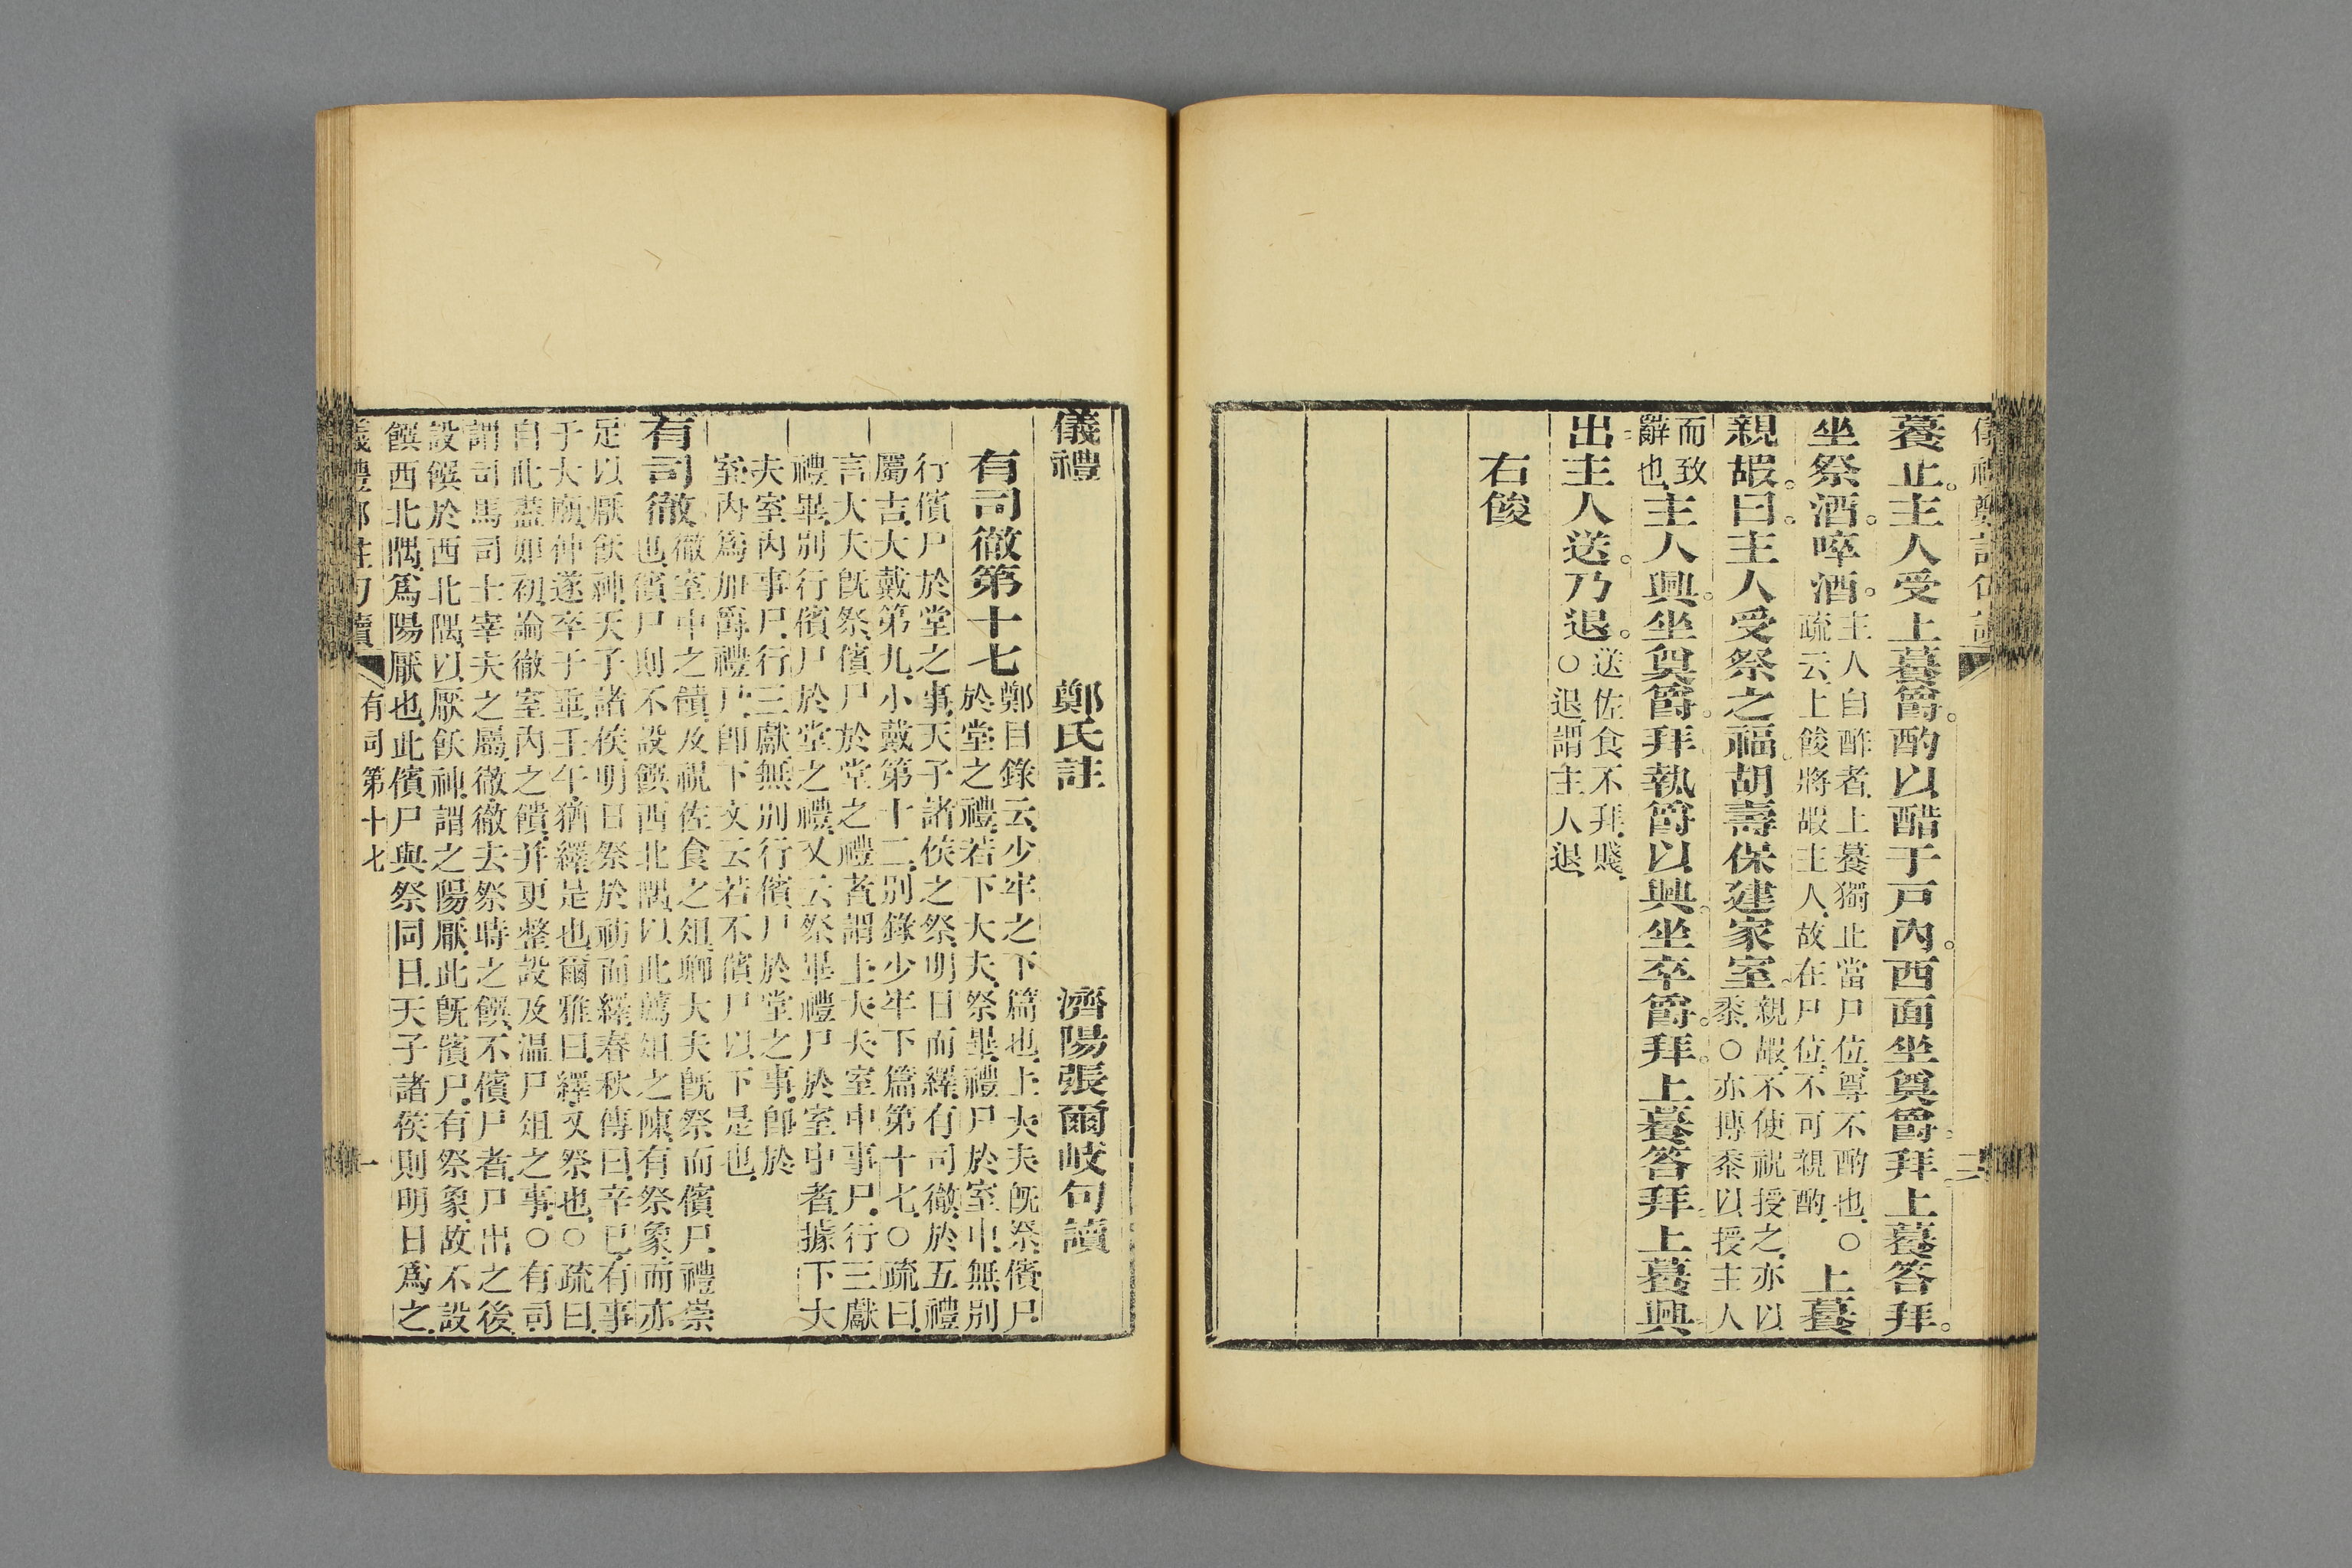 儀禮鄭註句讀
二
養止主人受上養爵酌以醋于戶內西面坐奠爵拜上養答拜
坐祭酒啐酒主人自酢者上養獨止當尸位尊不酌也○
疏云上餕將嘏主人故在尸位不可親酌
上養
親嘏曰主人受祭之福胡壽保建家室親嘏不使祝授之亦以
黍○亦摶黍以授主人
而致
辭也主人興坐奠爵拜執爵以興坐卒爵拜上養答拜上養興
出主人送乃退送佐食不拜賤
○退謂主人退
右餕
儀禮 鄭氏註 濟陽張爾岐句讀
有司徹第十七鄭目錄云少牢之下篇也上大夫旣祭儐尸
於堂之禮若下大夫祭畢禮尸於室中無別
行儐尸於堂之事天子諸侯之祭明日而繹有司徹於五禮
屬吉大戴第九小戴第十二別錄少牢下篇第十七○疏曰
言大夫旣祭儐尸於堂之禮者謂上大夫室中事尸行三獻
禮畢別行儐尸於堂之禮又云祭畢禮尸於室中者據下大
夫室內事尸行三獻無別行儐尸於堂之事卽於
室內爲加爵禮尸卽下文云若不儐尸以下是也
有司徹徹室中之饋及祝佐食之俎卿大夫旣祭而儐尸禮崇
也儐尸則不設饌西北隅以此薦俎之陳有祭象而亦
足以厭飫神天子諸侯明日祭於祊而繹春秋傳曰辛巳有事
于大廟仲遂卒于垂壬午猶繹是也爾雅曰繹又祭也○疏曰
自此盡如初論徹室內之饋并更整設及溫尸俎之事○有司
謂司馬司士宰夫之屬徹徹去祭時之饌不儐尸者尸出之後
設饌於西北隅以厭飫神謂之陽厭此旣儐尸有祭象故不設
饌西北隅爲陽厭也此儐尸與祭同日天子諸侯則明日爲之
儀禮鄭註句讀 有司第十七 一